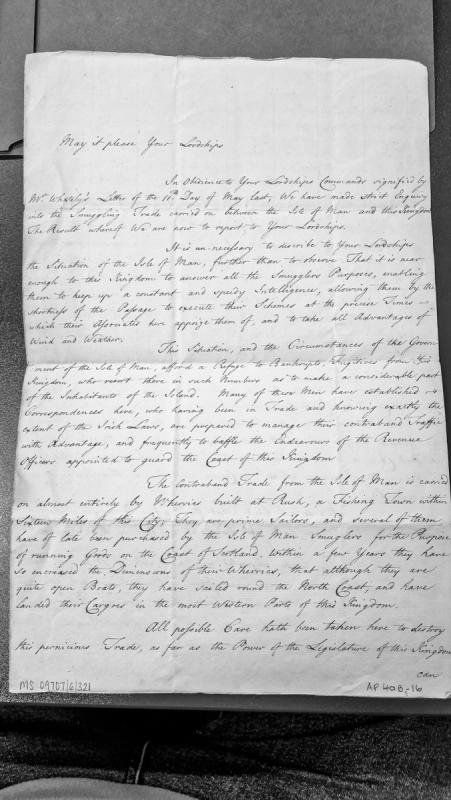 May it please Your Lordships
In Obedience to Your Lordships Commands signified by
Mr. Whately's Letter of the 11th Day of May last, We have made strict Enquiry
into the Smuggling Trade carried on between the Isle of Man and this Kingdom
The Result whereof We are now to report to Your Lordships.
It is unnecessary to describe to Your Lordships
the Situation of the Isle of Man, further than to observe That it is near
enough to this Kingdom to answer all the Smugglers Purposes, enabling
them to keep up a constant and speedy Intelligence, allowing them by the
shortness of the Passage to execute their Schemes at the precise Times
which their Associates here apprize them of, and to take all Advantages of
Wind and Weather.
This Situation, and the Circumstances of the Govern
ment of the Isle of Man, afford a Refuge to Bankrupts, Fugitives from this
Kingdom, who resort there in such Numbers as to make a considerable part
of the Inhabitants of the Island. Many of these Men have established
Correspondences here, who having been in Trade and knowing exactly the
extent of the Irish Laws, are prepared to manage their contraband Traffic
with Advantage, and frequently to baffle the Endeavours of the Revenue
Officers appointed to guard the Coast of this Kingdom
The Contraband Trade from the Isle of Man is carried
on almost entirely by Wherries built at Rush, a Fishing Town within
Sixteen Miles of this City; They are prime Sailors, and several of them
have of late been purchased by the Isle of Man Smuglers for the Purpose
of running Goods on the Coast of Scotland. Within a few Years they have
so increased the Dimensions of their Wherries, that although they are
quite open Boats, they have sailed round the North Coast, and have
landed their Cargoes in the most Western Parts of this Kingdom.
All possible Care hath been taken here to destroy
this pernicious Trade, as far as the Power of the Legislature of this Kingdom
can
MS 09707/6/321
AP 40B-16